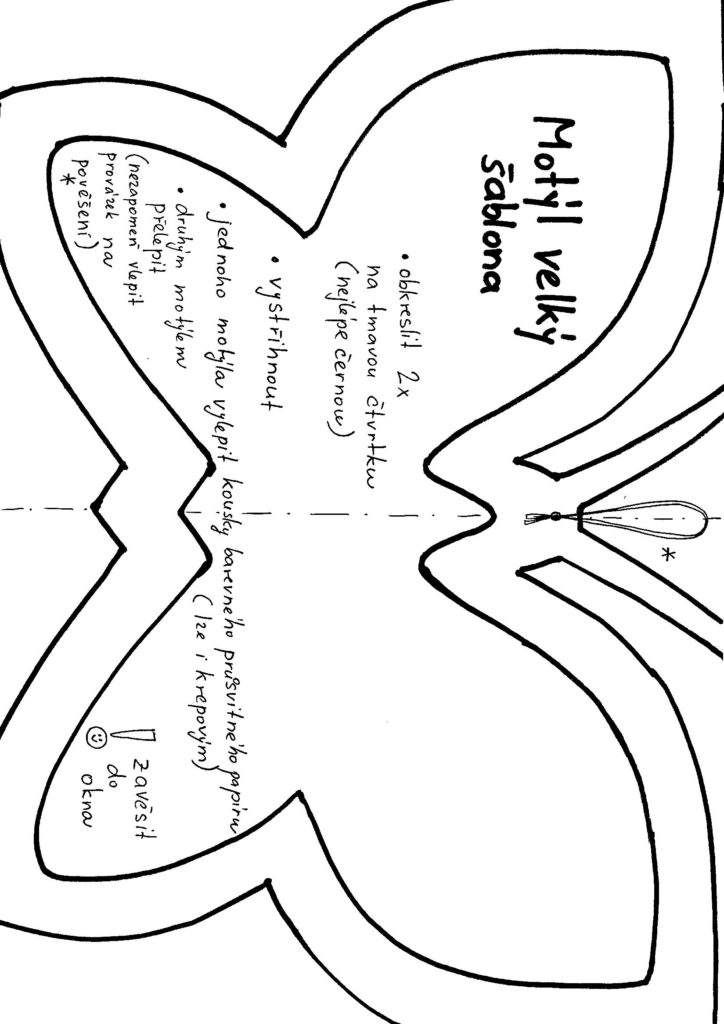 Motýl velký
šablona
• obkreslit 2x
na tmavou čtvrtku
(nejlépe černou)
• vystřihnout
• jednoho motýla vylepit kousky barevného průsvitného papíru
(lze i krepovým)
• druhým motýlem
přelepit
(nezapomeň vlepit
provázek na
pověšení)
*
*
! zavěsit
do
okna